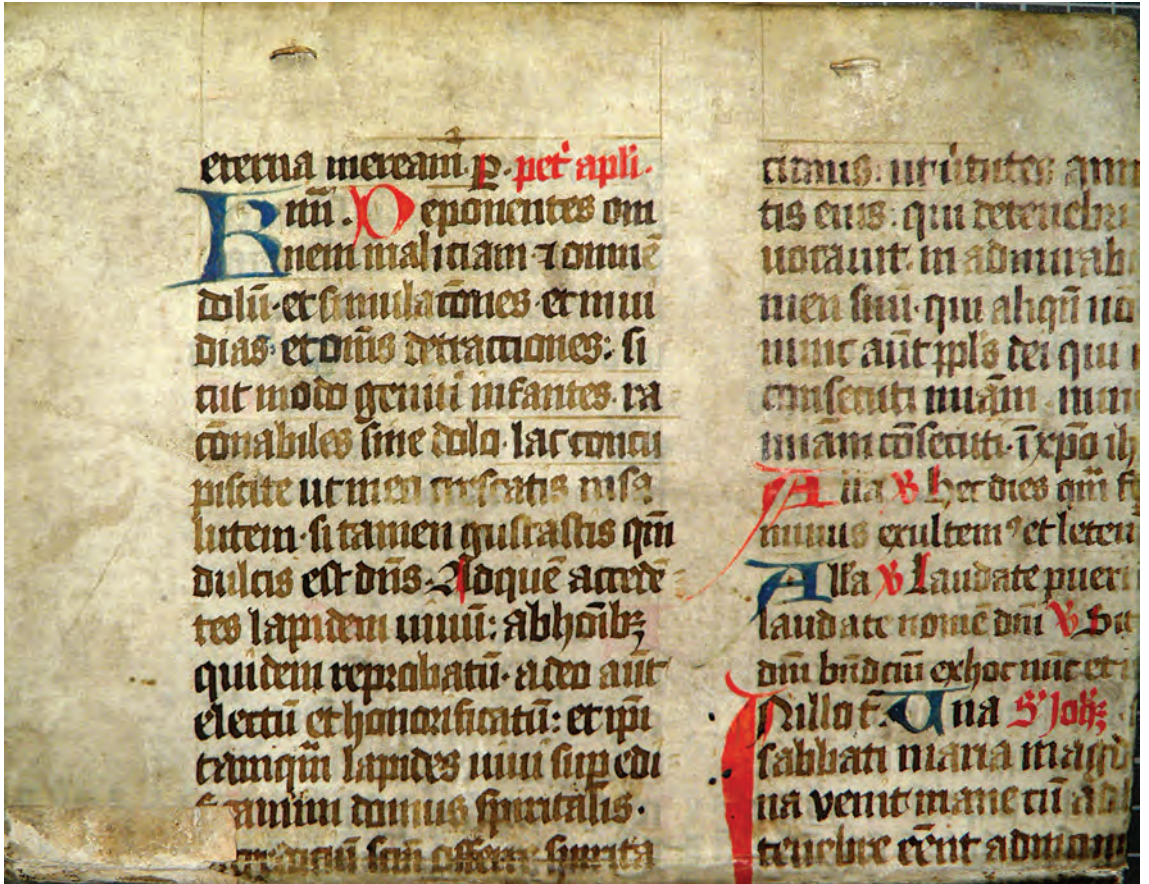 eterna mereamᷣ. P. pet᷑ apl̄i.
Kmi̅. Deponentes om
nem maliciam ⁊ omnē
dolū· et simulatōnes· et inui
dias· et om̄s detractiones: si
cut modo geniti infantes· ra
cōnabiles sine dolo· lac concu
piscite ut in eo crescatis in sa
lutem· si tamen gustastis qm̄
dulcis est dn̄s. Ad quē accedē
tes lapidem uiuū: ab hōibꝫ
quidem reprobatū· a deo aūt
electū et honorificatū: et ip̄i
tamqm̄ lapides uiui suꝑ edi
ficamini domus spiritalis·
sc̄m offerre spirita
cianus: ut uirtutes ann
tis eius: qui de tenebri
uocauit· in admirabi
men suū· qui aliqn̄ nō
nunc aūt ppl̄s dei qui
consecuti mīam· nunc
mīam cōsecuti· ī xp̄o ih
Alla ℣ Hec dies qm̄ fe
minus exultemꝰ et leten
Alla ℣ Laudate pueri
laudate nomē dn̄i ℣ Sit
dn̄i bn̄dictū ex hoc nūc et
In illo t̄. Una S' Joh̄
sabbati maria magd
na venit mane cū adh
tenebre eēnt ad monu